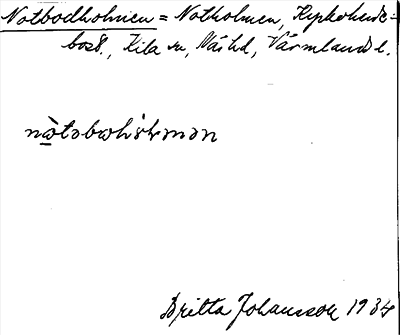 Notbodholmen = Notholmen,
bost., Kila sn, Näs hd, Värmlands l.
nɷ̀təbɷhɷ́lmən
Britta Johansson 1934